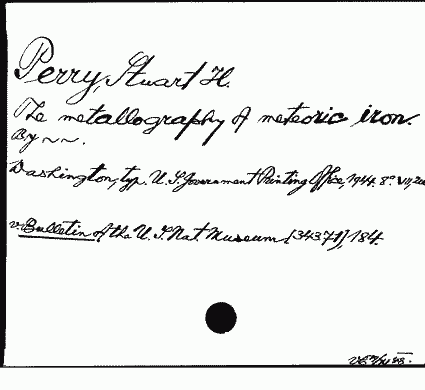 Perry, Stuart H.
The metallography of meteoric iron.
By ~~.
Washington, typ. U.S. Government Printing Office, 1944. 8° VII,
v. Bulletin of the U.S. Nat. Museum [34371], 184.